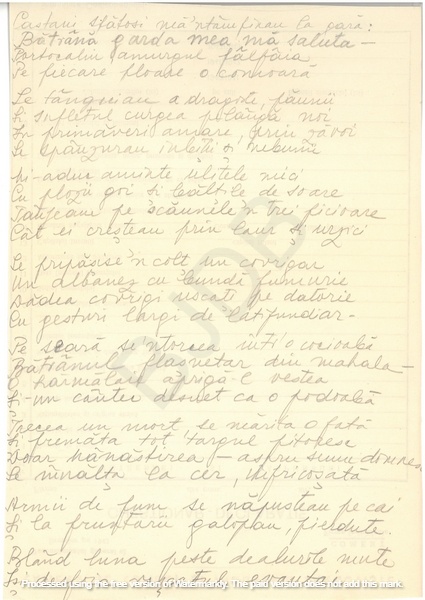 Castani sfătoși mă'ntâmpinau la gară:
Bătrână garda mea mă saluta –
Portocaliu amurgul fâlfâia
Pe fiecare ploare o comoară
Se tânguiau a dragoste, păunii
Și sufletul curgea pe lângă noi
În primăveri amare, prin zăvoi
Se spânzurau iubiții și nebunii
Mi-aduc aminte ulițele mici
Cu plozii goi și bălțile de soare
Țâșneau pe scăunele'n trei picioare
Cât ei creșteau prin laur și urzici
Se pripășise'n colț un covrigar
Un albanez cu blundă fumurie
Dădea covrigi uscați pe datorie
Cu gesturi largi de latifundiar –
Pe seară se'ntorcea într'o cocioabă
Bătrânul flașnetar din mahala –
O harmalaie aprigă-l vestea
Și-un cântec desuet ca o podoabă
Trecea un mort, se mărita o fată
Și fremăta tot târgul pitoresc
Doar mănăstirea – aspru semn domnesc
Se înălța la cer, înfricoșată
Armii de fum se năpusteau pe cai
Și la fruntarii galopau, pierdute.
Blând luna peste dealurile mute
BJDB
Processed using the free version of Watermarkly. The paid version does not add this mark.